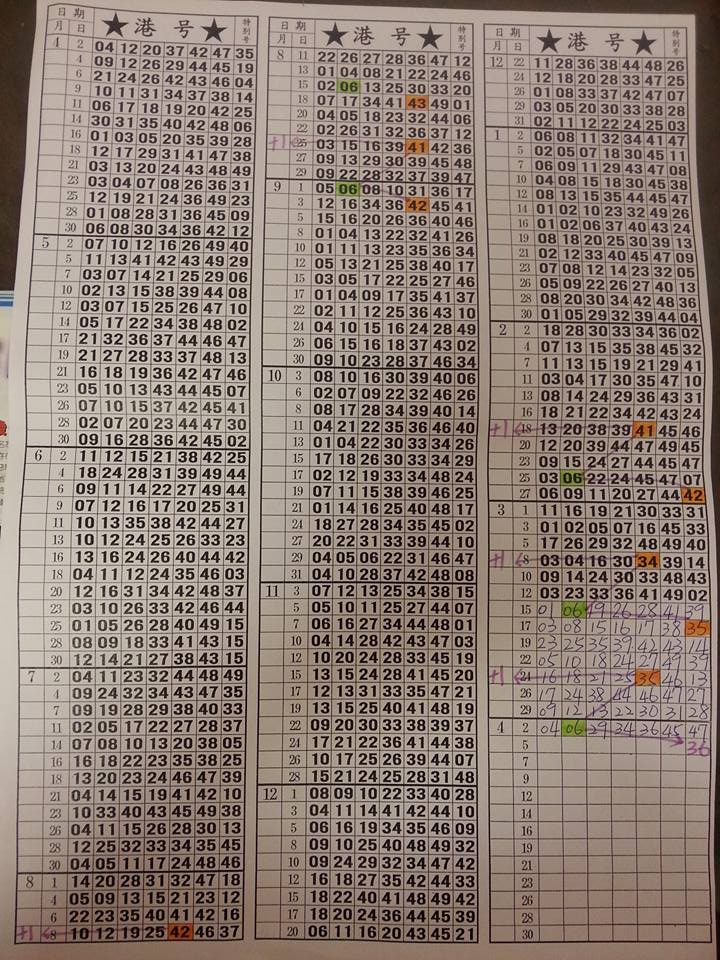 日 期 ★ 港 号 ★ 特別号
月 日
4 2 04 12 20 37 42 47 35
4 09 12 26 29 44 45 19
6 21 24 26 42 43 46 04
9 10 11 31 34 37 38 14
11 06 17 18 19 20 42 25
14 30 31 35 40 42 48 06
16 01 03 05 20 35 39 28
18 12 17 29 31 41 47 38
21 03 13 20 24 43 48 49
23 03 04 07 08 26 36 31
25 12 19 21 24 36 49 23
28 01 08 28 31 36 45 09
30 06 08 30 34 36 42 12
5 2 07 10 12 16 26 49 40
5 11 13 41 42 43 49 29
7 03 07 14 21 25 29 06
10 02 13 15 38 39 44 08
12 03 07 15 25 26 47 10
14 05 17 22 34 38 48 02
17 21 32 36 37 44 46 47
19 21 27 28 33 37 48 13
21 16 18 19 36 42 47 46
23 05 10 13 43 44 45 07
26 07 10 15 37 42 45 41
28 02 07 20 23 44 47 30
30 09 16 28 36 42 45 02
6 2 11 12 15 21 38 42 25
4 18 24 28 31 39 49 44
6 09 11 14 22 27 49 44
9 07 12 16 17 20 25 31
11 10 13 35 38 42 44 27
13 10 12 24 25 26 33 23
16 13 16 24 26 40 44 42
18 04 11 12 24 35 46 03
20 12 16 31 34 42 48 37
23 03 10 26 33 42 46 44
25 01 05 26 28 40 49 15
28 08 09 18 33 41 43 15
30 12 14 21 27 38 43 15
7 2 04 11 23 32 44 48 49
4 09 24 32 34 43 47 35
7 09 19 28 29 38 40 33
11 02 05 17 22 27 28 37
14 07 08 10 13 20 38 05
16 16 18 22 23 35 38 25
18 13 20 23 24 46 47 39
21 04 14 15 19 41 42 10
24 10 33 40 43 45 49 38
26 04 11 15 26 28 30 13
28 12 25 32 33 34 35 45
30 04 05 11 17 24 48 46
8 1 14 20 28 31 32 47 18
4 05 09 13 15 21 23 12
6 22 23 35 40 41 42 16
+1 8 10 12 19 25 42 46 37
日 期 ★ 港 号 ★ 特別号
月 日
8 11 22 26 27 28 36 47 12
13 01 04 08 21 22 24 46
15 02 06 13 25 30 33 20
18 07 17 34 41 43 49 01
20 04 05 18 23 32 44 06
22 02 26 31 32 36 37 12
+1 25 03 15 16 39 41 42 36
27 09 13 29 30 39 45 48
29 09 22 28 32 37 39 47
9 1 05 06 08 10 31 36 17
3 12 16 34 36 42 45 41
5 15 16 20 26 36 40 46
8 01 04 13 22 32 41 26
10 01 11 13 23 35 36 34
12 05 13 21 25 38 40 17
15 03 05 17 22 25 27 46
17 01 04 09 17 35 41 37
22 02 11 12 25 36 43 10
24 04 10 15 16 24 28 49
26 06 15 16 18 37 43 02
30 09 10 23 28 37 46 34
10 3 08 10 16 30 39 40 06
6 02 07 09 22 32 46 26
8 08 17 28 34 39 40 14
11 04 21 22 35 36 46 40
13 01 04 22 30 33 34 26
15 17 18 26 30 33 34 29
17 02 12 19 33 34 48 24
19 07 11 15 38 39 46 25
21 01 14 16 25 40 48 17
24 18 27 28 34 35 45 02
27 20 22 31 33 39 44 10
29 04 05 06 22 31 46 47
31 04 10 28 37 42 48 08
11 3 07 12 13 25 34 38 15
5 05 10 11 25 27 44 07
7 06 16 27 34 44 48 01
10 04 14 28 42 43 47 03
12 10 20 24 28 33 45 19
15 13 15 24 28 41 45 20
17 12 13 31 33 35 47 21
19 13 15 25 40 41 48 19
22 09 20 30 33 38 39 37
24 17 21 22 36 41 44 38
26 10 17 25 26 39 44 07
28 15 21 24 25 28 31 48
12 1 08 09 10 22 33 40 28
3 04 11 14 41 42 44 10
5 06 16 19 34 35 46 09
8 09 10 25 40 48 49 32
10 09 24 29 32 34 47 42
12 16 18 27 35 42 44 33
15 18 22 40 41 48 49 42
17 18 20 24 36 44 45 39
20 06 11 16 20 43 45 21
日 期 ★ 港 号 ★ 特別号
月 日
12 22 11 28 36 38 44 48 26
24 12 18 20 28 33 47 25
26 01 08 33 37 42 47 07
29 03 05 20 30 33 38 28
31 02 11 12 22 24 25 03
1 2 06 08 11 32 34 41 47
5 02 05 07 18 30 45 11
7 06 09 11 29 43 47 08
10 04 08 15 18 30 45 38
12 08 13 15 35 44 45 47
14 01 02 10 23 32 49 26
16 01 02 06 37 40 43 24
19 08 18 20 25 30 39 13
21 02 12 33 40 45 47 09
23 07 08 12 14 23 32 05
26 05 09 22 26 27 40 13
28 08 20 30 34 42 48 36
30 01 05 29 32 39 44 04
2 2 18 28 30 33 34 36 02
4 07 13 15 35 38 45 32
7 11 13 15 19 21 29 41
11 03 04 17 30 35 47 10
13 08 14 24 29 36 43 31
16 18 21 22 34 42 43 24
+1 18 13 20 38 39 41 45 46
20 12 20 39 44 47 49 45
23 09 15 24 27 44 45 47
25 03 06 22 24 45 47 07
27 06 09 11 20 27 44 42
3 1 11 16 19 21 30 33 31
3 01 02 05 07 16 45 33
5 17 26 29 32 48 49 40
+1 8 03 04 16 30 34 39 14
10 09 14 24 30 33 48 43
12 03 23 33 36 41 49 02
15 01 06 19 26 28 41 39
17 03 08 15 16 17 38 35
19 23 25 35 39 42 43 14
22 05 10 18 24 27 49 39
+1 24 16 18 21 25 35 46 13
26 17 24 38 44 46 47 27
29 09 12 13 22 30 31 28
4 2 04 06 29 34 36 45 47
5 36
7
9
12
14
16
19
21
23
26
28
30